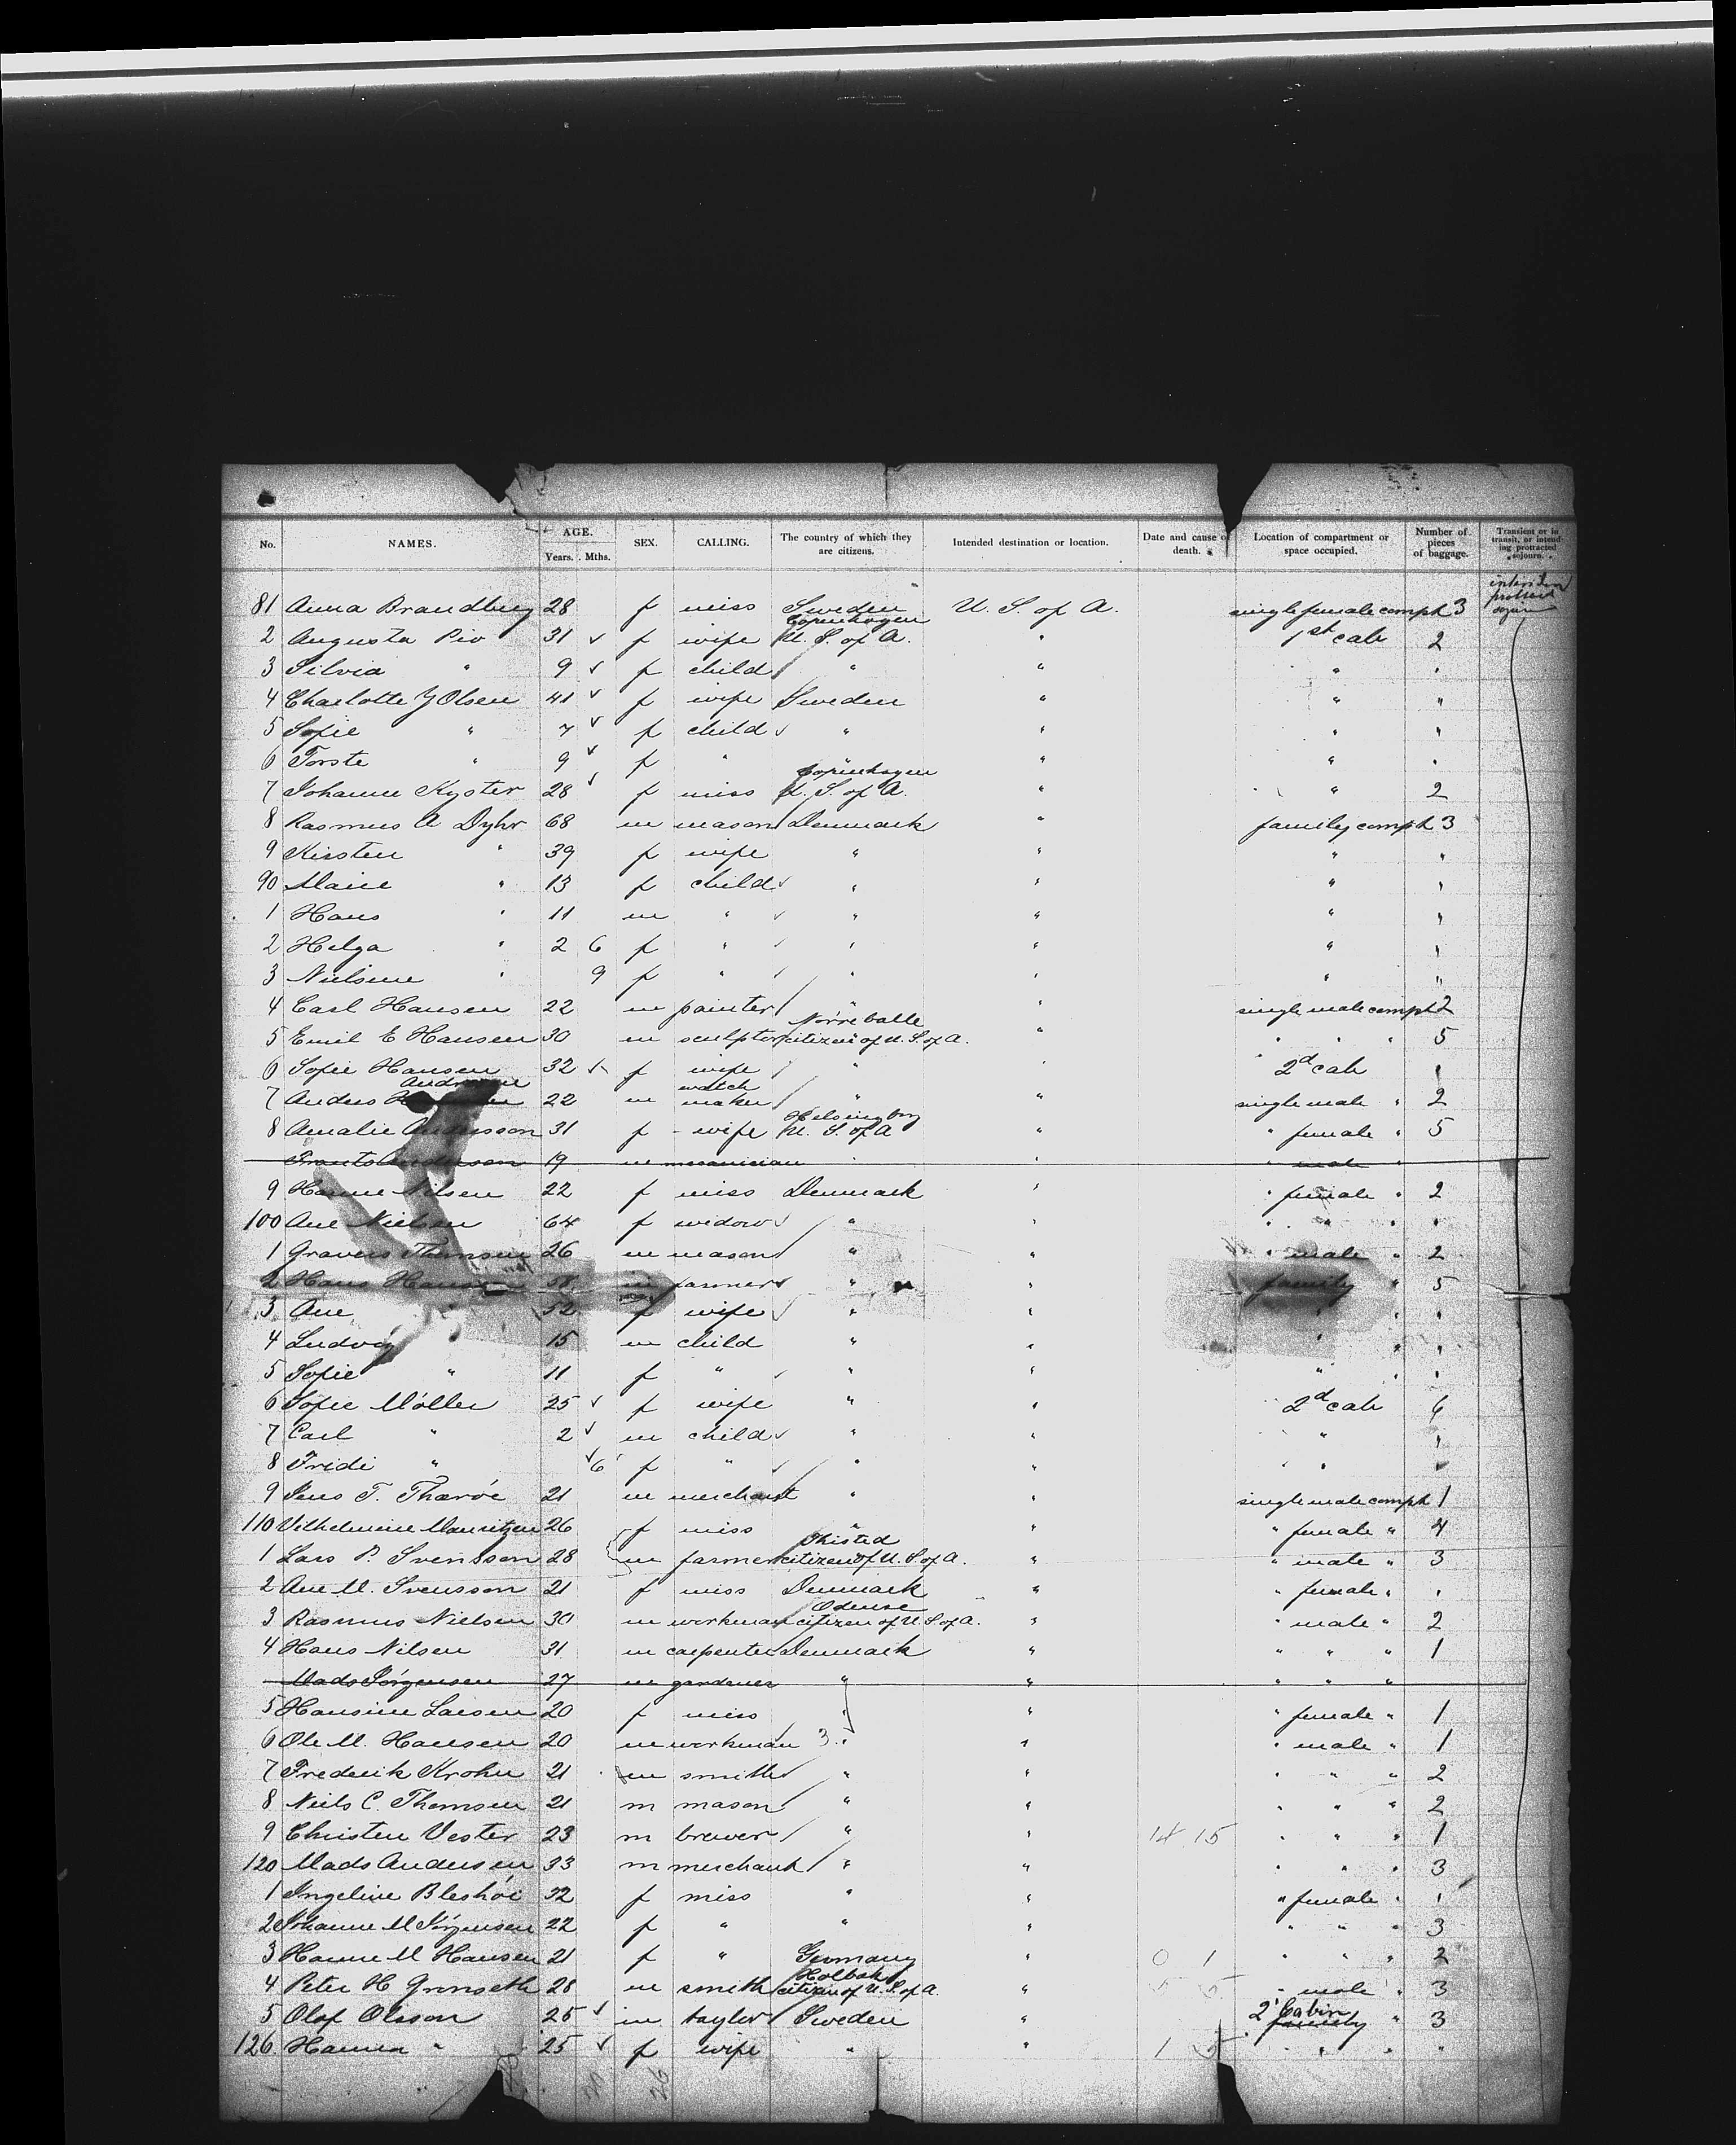 No. NAMES. AGE. Years. Mths. SEX. CALLING. The country of which they are citizens. Intended destination or location. Date and cause of death. Location of compartment or space occupied. Number of pieces of baggage. Transient or in transit, or intending protracted sojourn.
81 Anna Brandberg 28 f miss Sweden U. S. of A. single female compt 3
Copenhagen
2 Augusta Pio 31 ✓ f wife U. S. of A. " 1st cab 2
3 Silvia " 9 ✓ f child " " " "
4 Charlotte J Olsen 41 ✓ f wife Sweden " " "
5 Sofie " 7 ✓ f child ✓ " " " "
6 Torste " 9 ✓ f " " " " "
Copenhagen
7 Johanne Kyster 28 ✓ f miss U. S. of A. " " 2
8 Rasmus A Dyhr 68 m mason Denmark " family compt 3
9 Kirsten " 39 f wife " " " "
90 Marie " 13 f child ✓ " " " "
1 Hans " 11 m " ✓ " " " "
2 Helga " 2 6 f " ✓ " " " "
3 Nielsine " 9 f " ✓ " " " "
4 Carl Hansen 22 m painter " " single male compt 2
Nörreballe
5 Emil E Hansen 30 m sculptor citizen of U. S. of A. " " " " 5
6 Sofie Hansen 32 f wife " " 2d cab "
watch
7 Anders 22 m maker " " single male " 2
Helsingborg
8 Amalie Andersson 31 f - wife U. S. of A " " female " 5
19 m mecanician " " " male "
9 Hanne Nilsen 22 f miss Denmark " " female " 2
100 Ane Nielsen 64 f widow ✓ " " " " " "
1 Gravers Thomsen 26 m mason " " " male " 2
2 Hans Hansen 58 m farmer ✓ " " family " 5
3 Ane " 52 f wife ✓ " " " " "
4 Ludvig " 15 m child " " " " "
5 Sofie " 11 f " ✓ " " " " "
6 Sofie Möller 25 ✓ f wife " " 2d cab 6
7 Carl " 2 ✓ m child ✓ " " " "
8 Fridi " ✓ 6 f " ✓ " " " "
9 Jens T. Tharöe 21 m merchant " " single male compt 1
110 Vilhelmine Mauritzen 26 f miss " " " female " 4
Thisted
1 Lars P. Svensson 28 m farmer citizen of U. S. of A. " " male " 3
2 Ane M. Svensson 21 f miss Denmark " " female " "
Odense
3 Rasmus Nielsen 30 m workman citizen of U. S. of A. " " male " 2
4 Hans Nilsen 31 m carpenter Denmark " " " " 1
Mads Jörgensen 27 m gardener " " " " "
5 Hansine Larsen 20 f miss " " " female " 1
6 Ole M. Hansen 20 m workman 3 " " " male " 1
7 Frederik Krohn 21 m smith " " " " " 2
8 Niels C. Thomsen 21 m mason " " " " " 2
9 Christen Vester 23 m brewer " " 14 15 " " " 1
120 Mads Andersen 33 m merchant " " " " " 3
1 Ingeline Bleshöi 32 f miss " " " female " 1
2 Johanne M Jörgensen 22 f " " " " " " 3
3 Hanne M Hansen 21 f " Germany " 0 1 " " " 2
Holbak
4 Peter H Gronseth 28 m smith citizen of U. S. of A. " " male " 3
2' Cabin
5 Olof Olsson 25 ✓ m taylor Sweden " family " 3
126 Hanna " 25 ✓ f wife " " 1 5 " " "
26